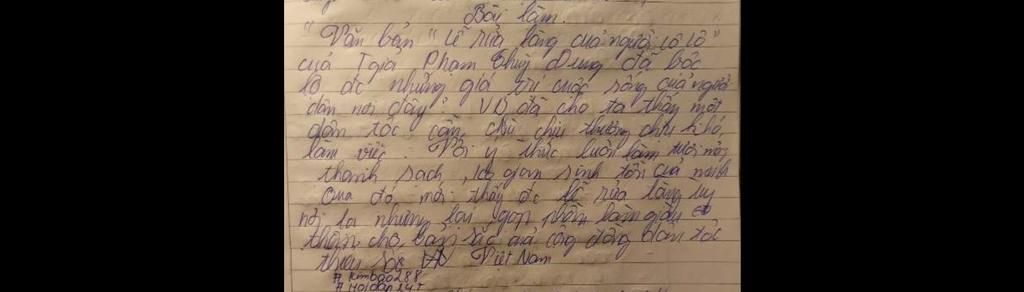 Bài làm.
"Văn bản "Lễ rửa làng của người Lô Lô"
của Tgiả Phạm Thuỳ Dung đã bộc
lộ đc những giá trị cuộc sống của người
dân nơi đây". VB đã cho ta thấy một
dân tộc cần cù chịu thương chịu khó,
làm việc. Với ý thức luôn làm tươi mới,
thanh sạch, ko gian sinh tồn của mình
Qua đó, mới thấy đc lễ rửa làng tuy
nói là nhưng lại gọn nhằm làm giàu
thêm cho bản sắc của cộng đồng dân tộc
thiểu số VN Việt Nam
#kimbao288
#Hoidap247